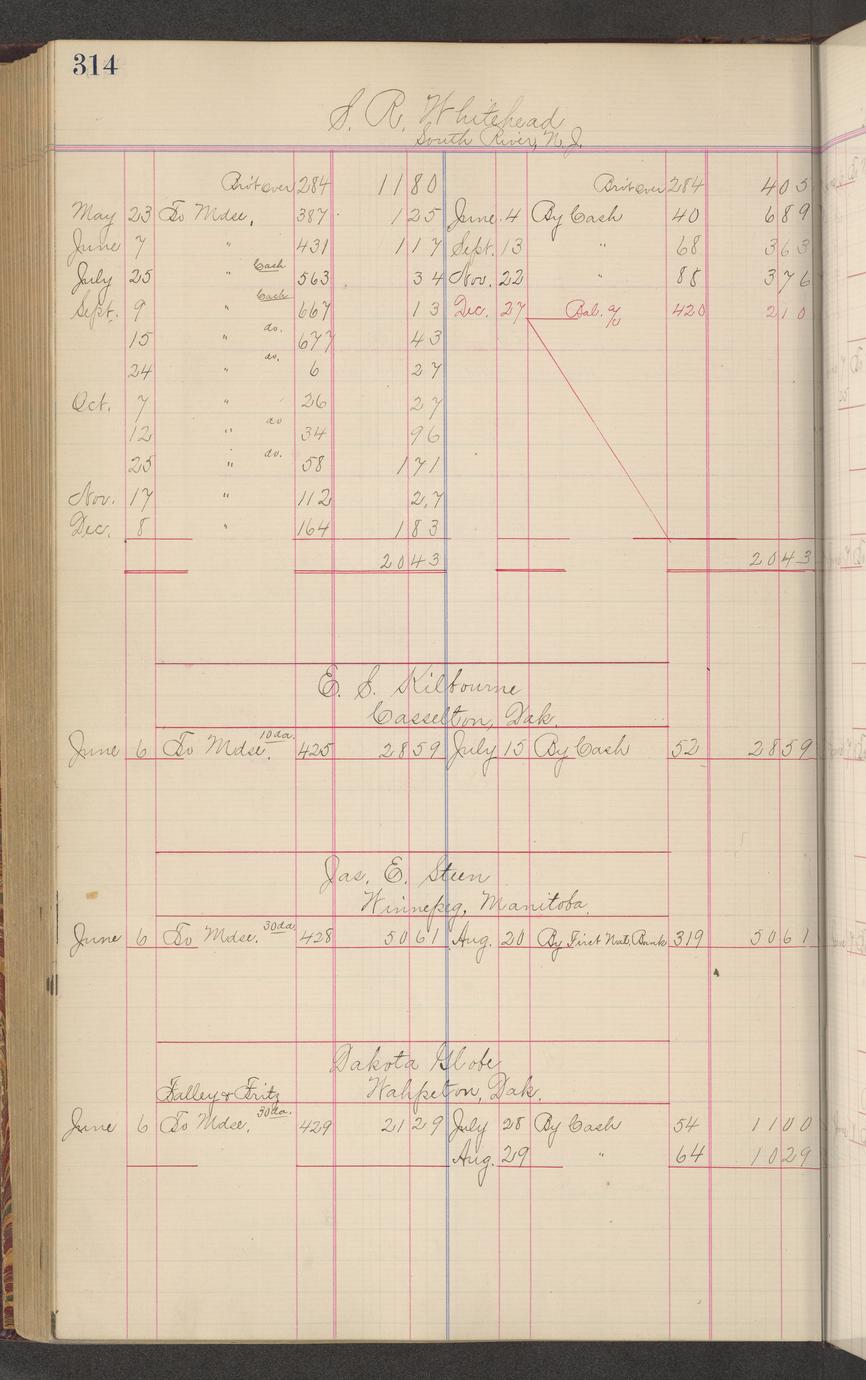 314
S. R. Whitehead
South River, N. J.
Bro't over 284 1180 Bro't over 284 405
May 23 To Mdse, 387 125 June 4 By Cash 40 689
June 7 " 431 117 Sept. 13 " 68 363
July 25 " Cash 563 34 Nov. 22 " 88 376
Sept. 9 " Cash 667 13 Dec. 27 Bal. a/c 420 210
15 " do. 677 43
24 " do. 6 27
Oct. 7 " 26 27
12 " do 34 96
25 " do. 58 171
Nov. 17 " 112 2,7
Dec. 8 " 164 183
2043 2043
E. S. Kilbourne
Casselton, Dak.
June 6 To Mdse. 10 da. 425 2859 July 15 By Cash 52 2859
Jas. E. Steen
Winnepeg, Manitoba.
June 6 To Mdse. 30 da. 428 5061 Aug. 20 By First Nat. Bank 319 5061
Dakota Globe
Falley & Fritz Wahpeton, Dak.
June 6 To Mdse. 30 da. 429 2129 July 28 By Cash 54 1100
Aug. 29 " 64 1029